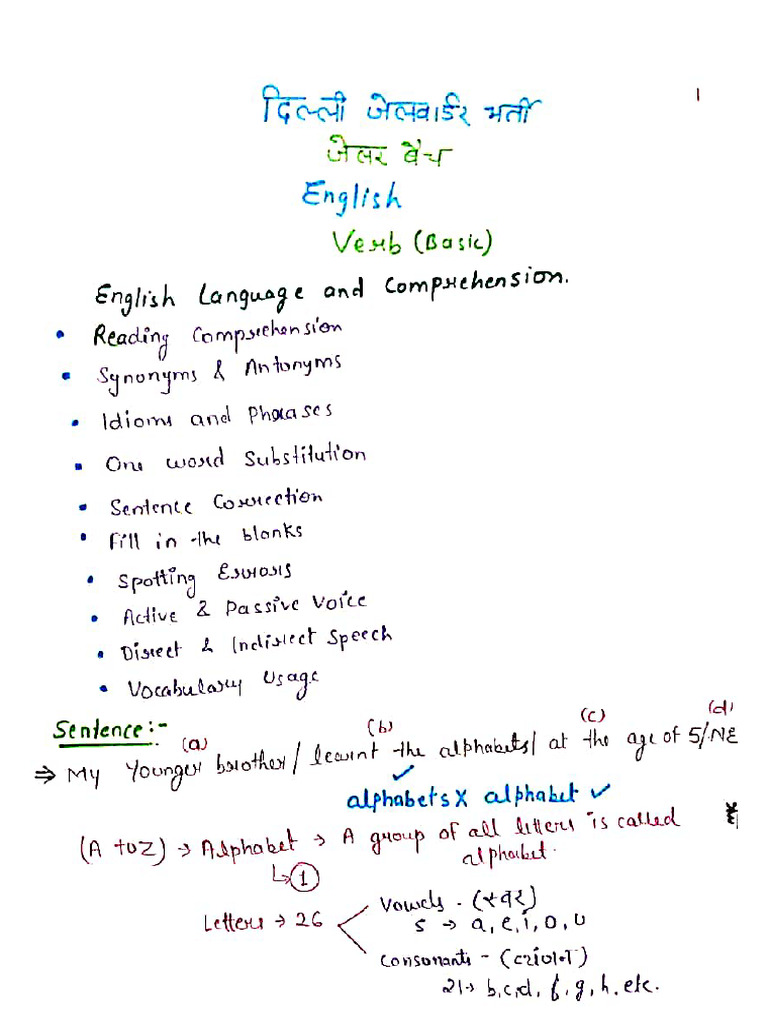 1
दिल्ली जेलवार्डर भर्ती
जेलर बैच
English
Verb (Basic)
English Language and Comprehension.
• Reading Comprehension
• Synonyms & Antonyms
• Idioms and Phrases
• One word Substitution
• Sentence Correction
• Fill in the blanks
• Spotting Errors
• Active & Passive Voice
• Direct & Indirect Speech
• Vocabulary Usage
Sentence:-
(a) (b) (c) (d)
⇒ My Younger brother/ learnt the alphabets/ at the age of 5/NE
✓
alphabets X alphabet ✓
(A to Z) → Alphabet → A group of all letters is called
alphabet.
↳ 1
Letters → 26
Vowels - (स्वर)
5 → a, e, i, o, u
Consonants - (व्यंजन)
21 → b, c, d, f, g, h. etc.